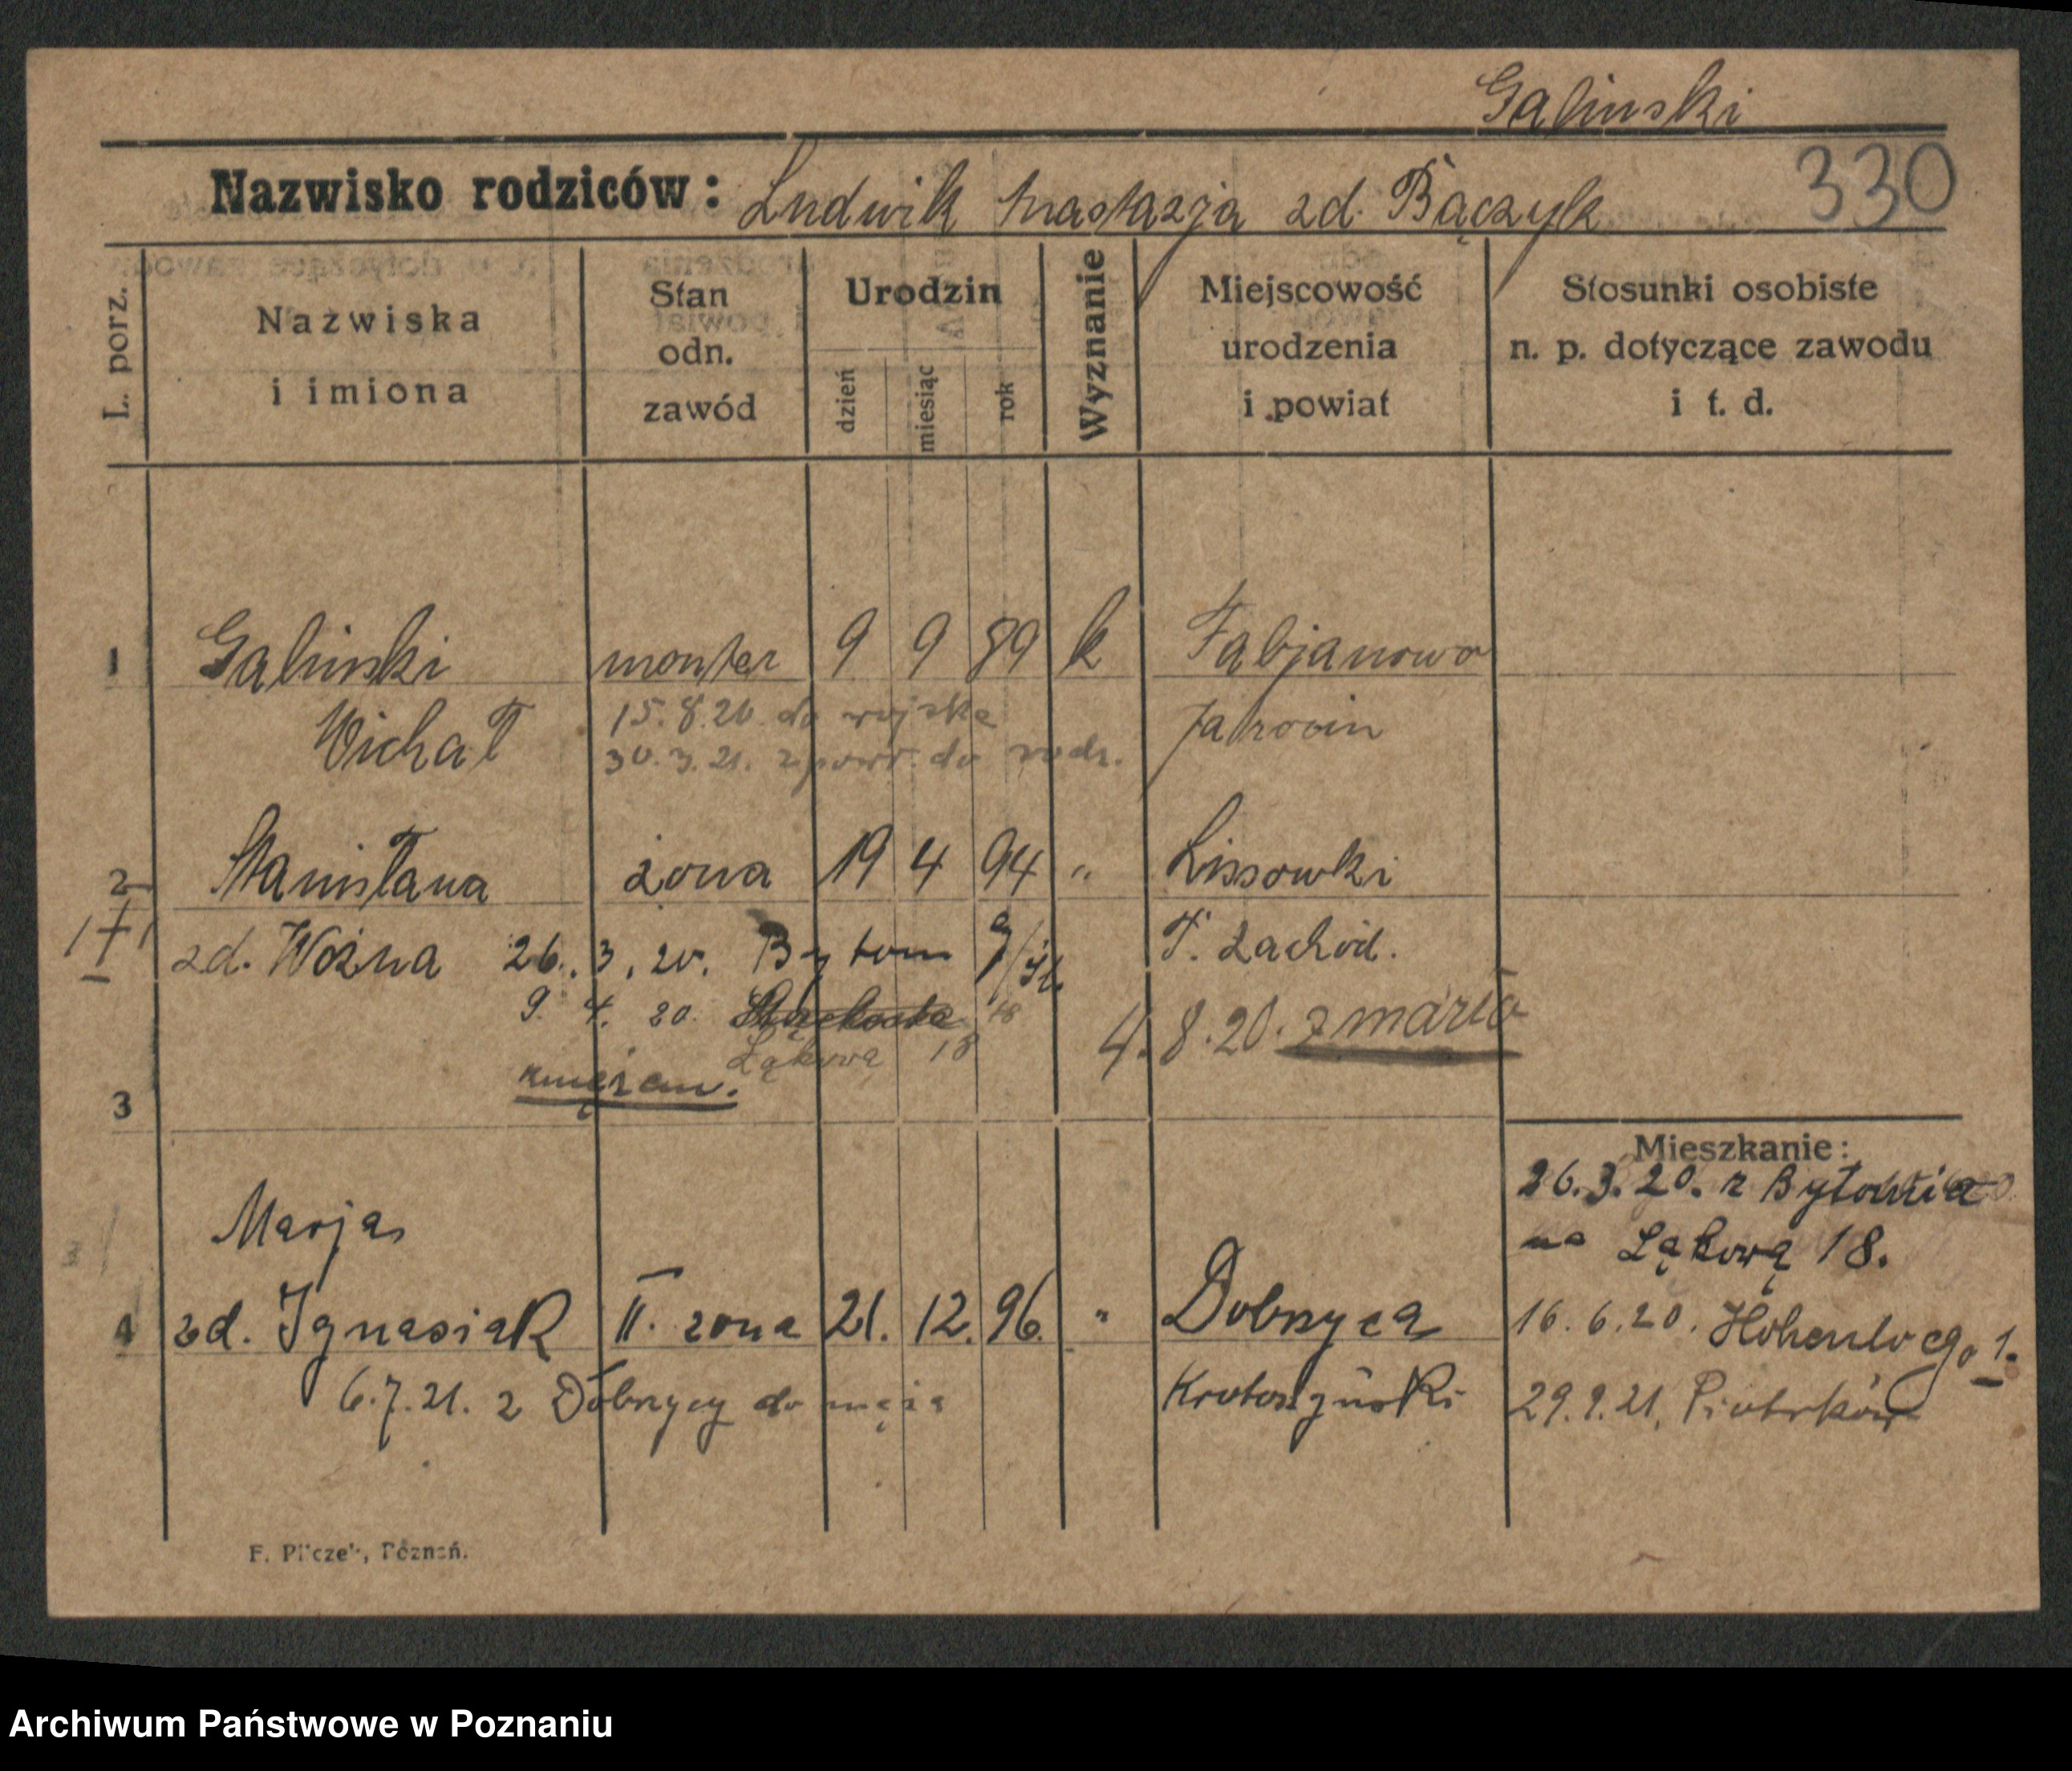 Galinski
Nazwisko rodziców: Ludwik Nastazja zd. Bączyk 330
L. porz.
Nazwiska i imiona
Stan odn. zawód
Urodzin
dzień miesiąc rok
Wyznanie
Miejscowość urodzenia i powiat
Stosunki osobiste n. p. dotyczące zawodu i t. d.
1 Galinski monter 9 9 89 k Fabjanowo
Michał 15.8.20 do wojska Jarocin
30.3.21. z powr. do rodz.
2 Stanisława żona 19 4 94 " Lissowki
zd. Woźna 26.3.20. Bytom g/śl. P. Zachód.
9. 4. 20. 18
Łąkowa 18 4.8.20. zmarła
3
Mieszkanie:
26.3.20. z Bytomia
na Łąkową 18.
Marja
4 zd. Ignasiak II. żona 21. 12. 96. " Dobrzyca
16.6.20. Hohenlocgo 1.
6.7.21. z Dobrzycy do męża Krotoszyński
29.9.21. Piotrków
F. Pilczek, Poznań.
Archiwum Państwowe w Poznaniu